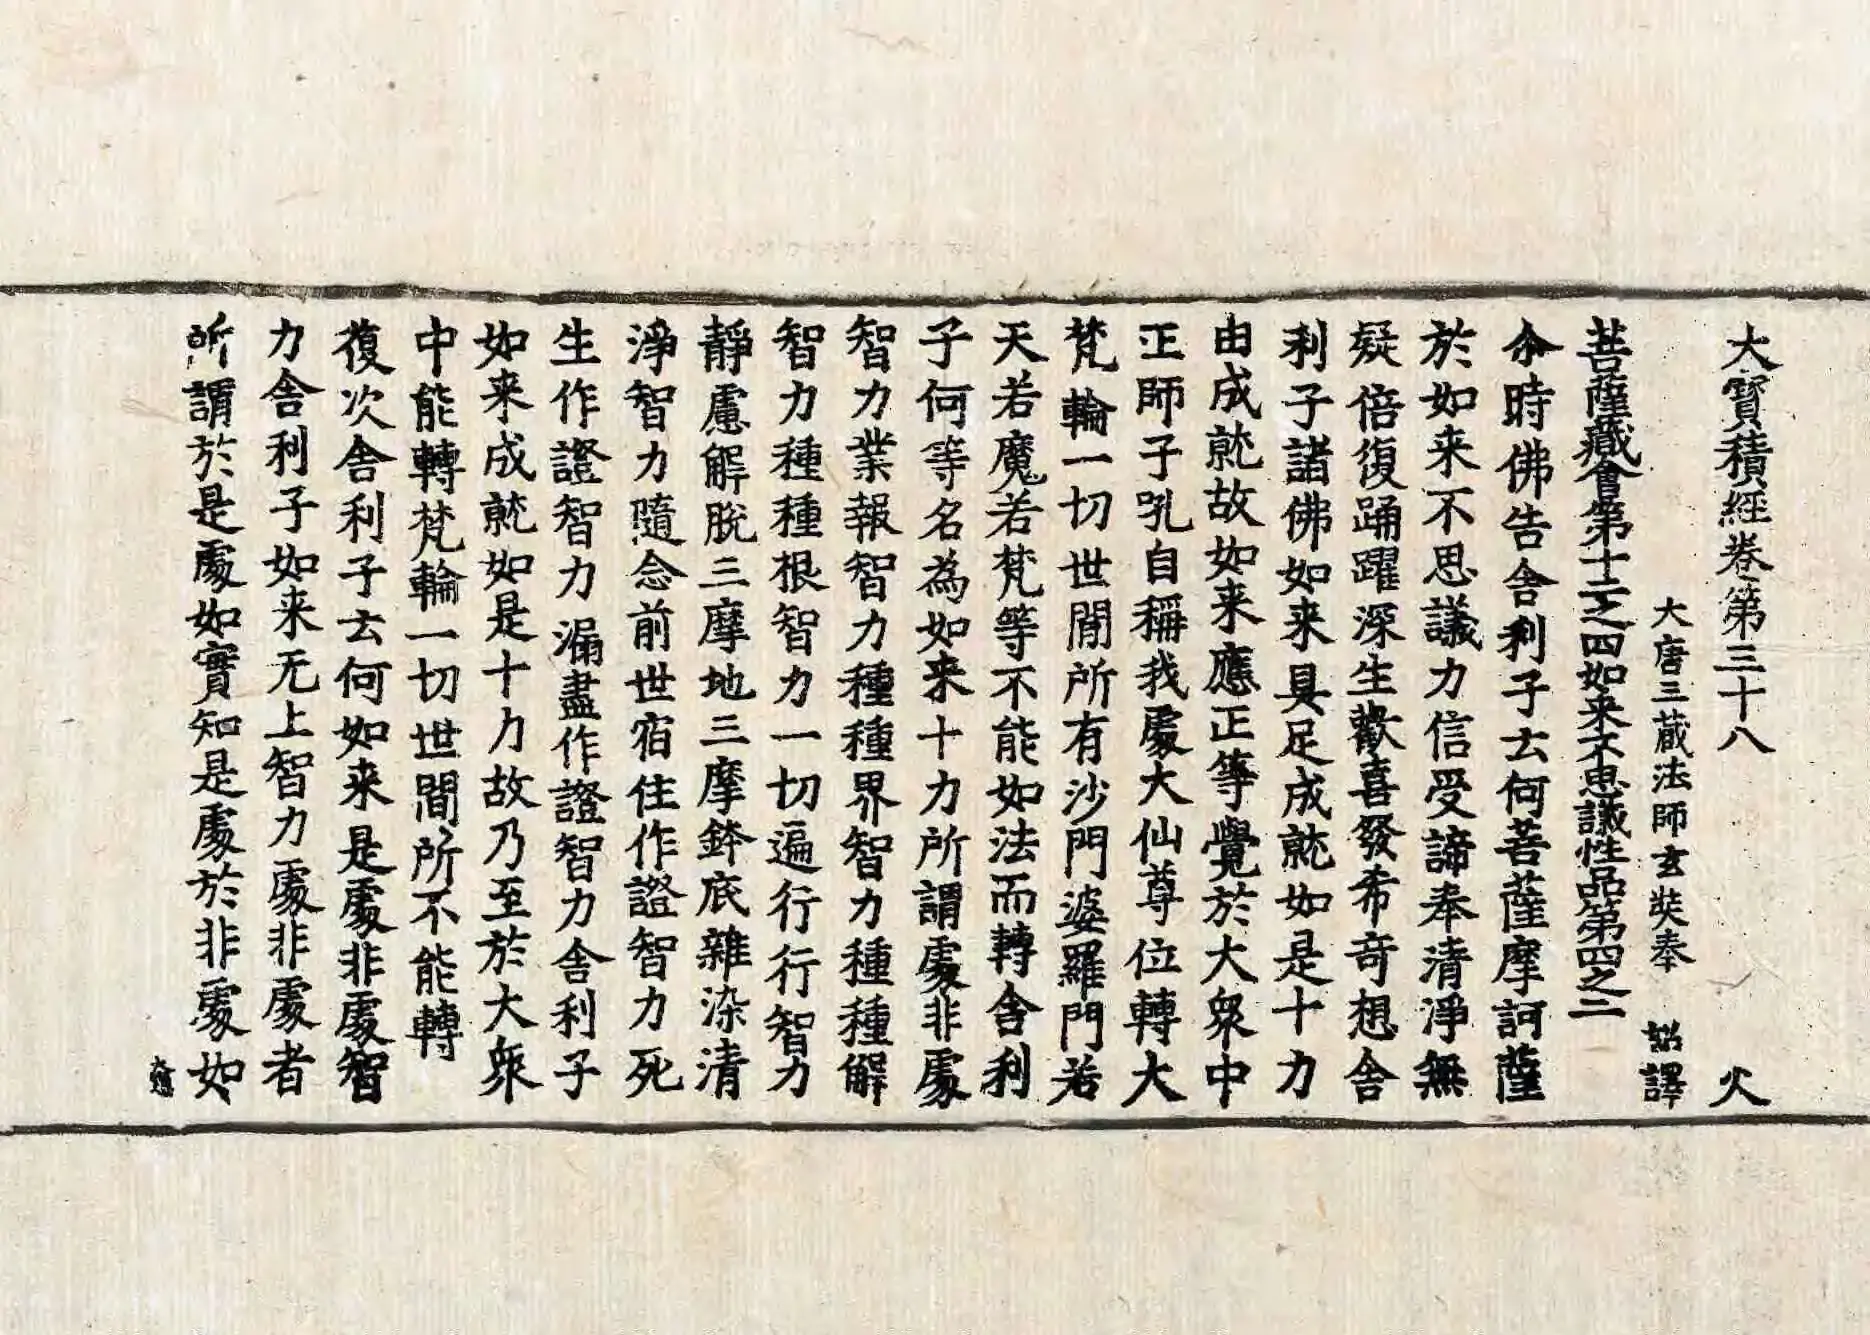 大寶積經卷第三十八　火
大唐三蔵法師玄奘奉　詔譯
菩薩藏會第十二之四如来不思議性品第四之二
尒時佛告舎利子云何菩薩摩訶薩
於如来不思議力信受諦奉清淨無
疑倍復踊躍深生歡喜發希奇想舎
利子諸佛如来具足成就如是十力
由成就故如来應正等覺於大衆中
正師子吼自稱我處大仙尊位轉大
梵輪一切世間所有沙門婆羅門若
天若魔若梵等不能如法而轉舎利
子何等名為如来十力所謂處非處
智力業報智力種種界智力種種解
智力種種根智力一切遍行行智力
靜慮解脫三摩地三摩鉢底雜染清
淨智力隨念前世宿住作證智力死
生作證智力漏盡作證智力舎利子
如来成就如是十力故乃至於大衆
中能轉梵輪一切世間所不能轉
復次舎利子云何如来是處非處智
力舎利子如来无上智力處非處者
所謂於是處如實知是處於非處如